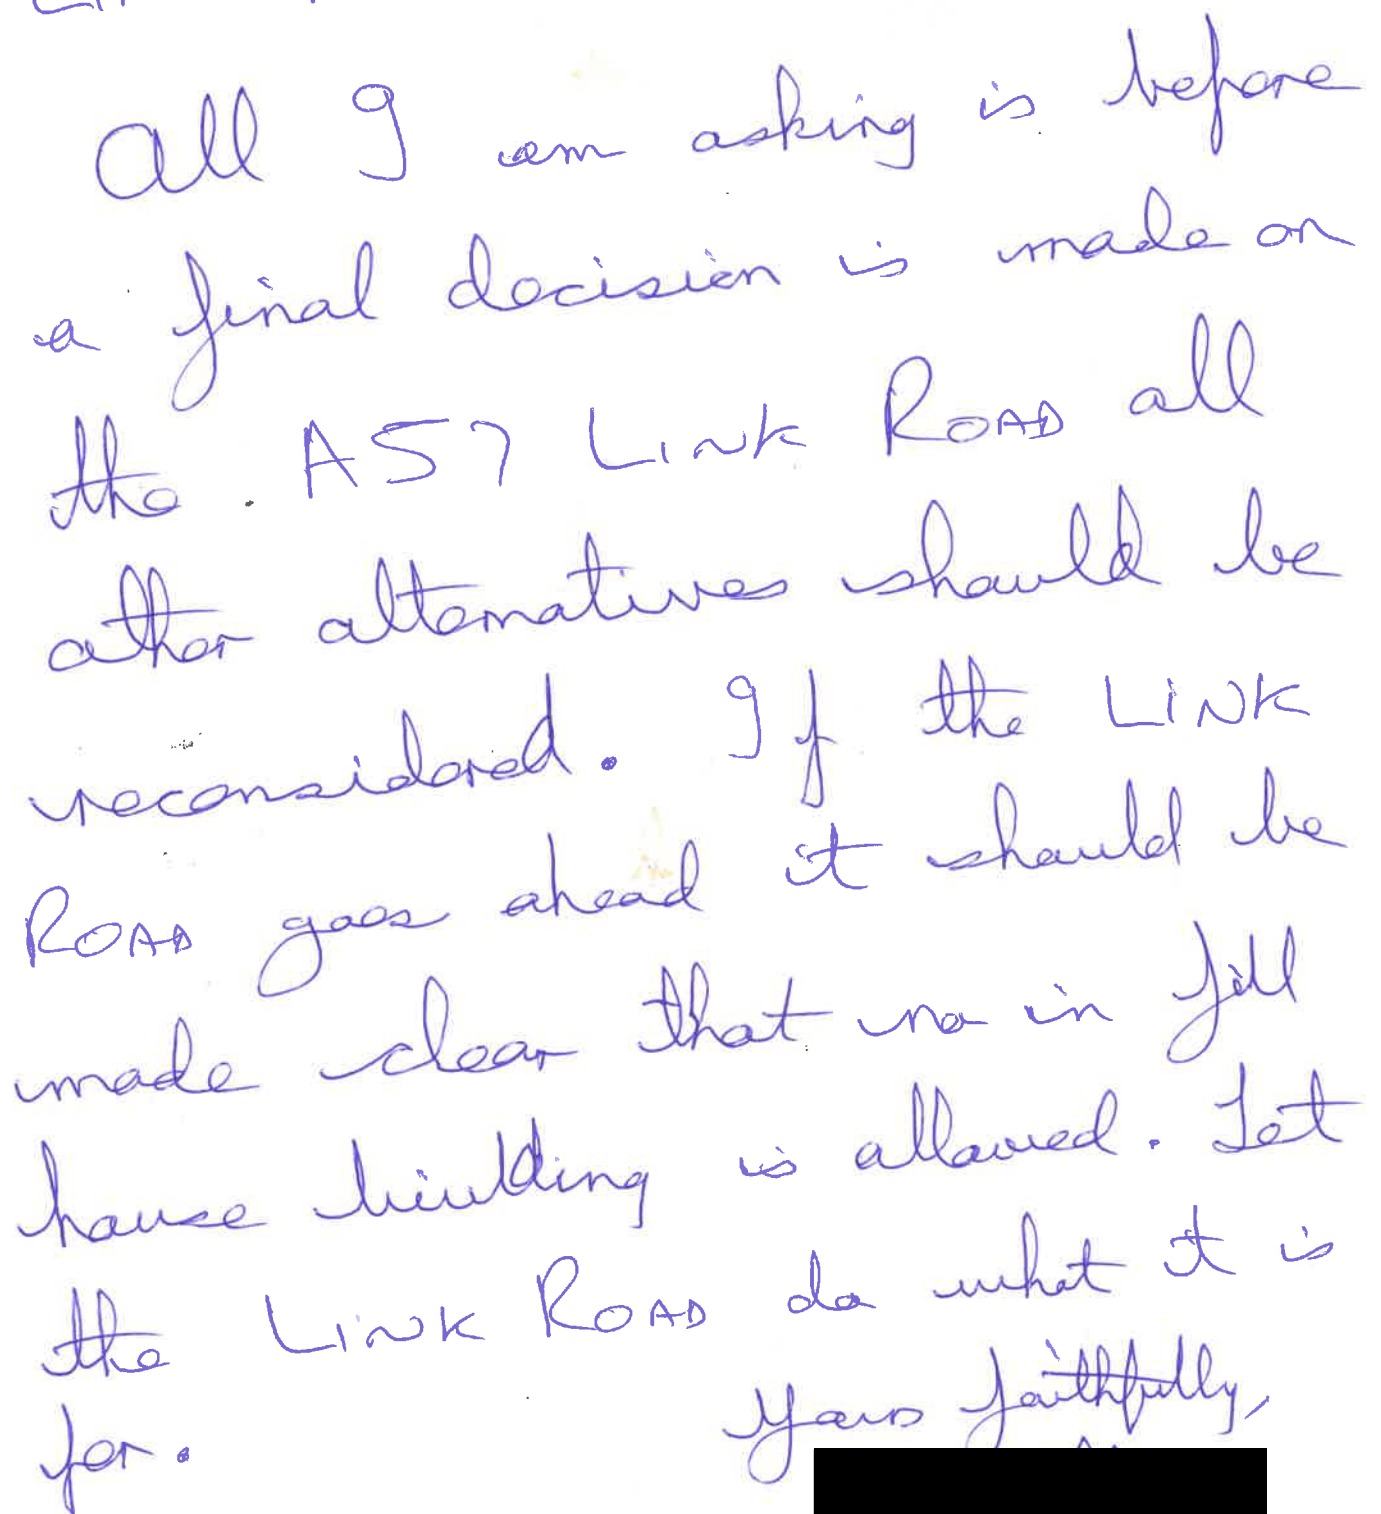 All I am asking is before
a final decision is made on
the A57 LINK ROAD all
other alternatives should be
reconsidered. If the LINK
ROAD goes ahead it should be
made clear that no in fill
house building is allowed. Let
the LINK ROAD do what it is
for.
Yours faithfully,